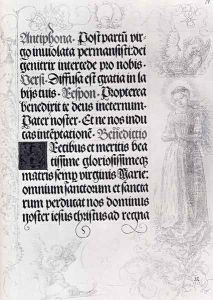 Antiphona. Post partū vir
go inuiolata permansisti: dei
genitrix intercede pro nobis.
Versi. Diffusa est gratia in la
bijs tuis. Respon. Propterea
benedixit te deus in eternum.
Pater noster. Et ne nos indu
cas in temptationē. Benedictio
Precibus et meritis bea
tissime gloriosissimeq;
matris semp virginis Marie:
omnium sanctorum et sancta
rum perducat nos dominus
noster iesus christus ad regna